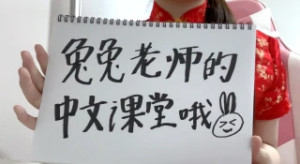 兔兔老师的
中文课堂哦